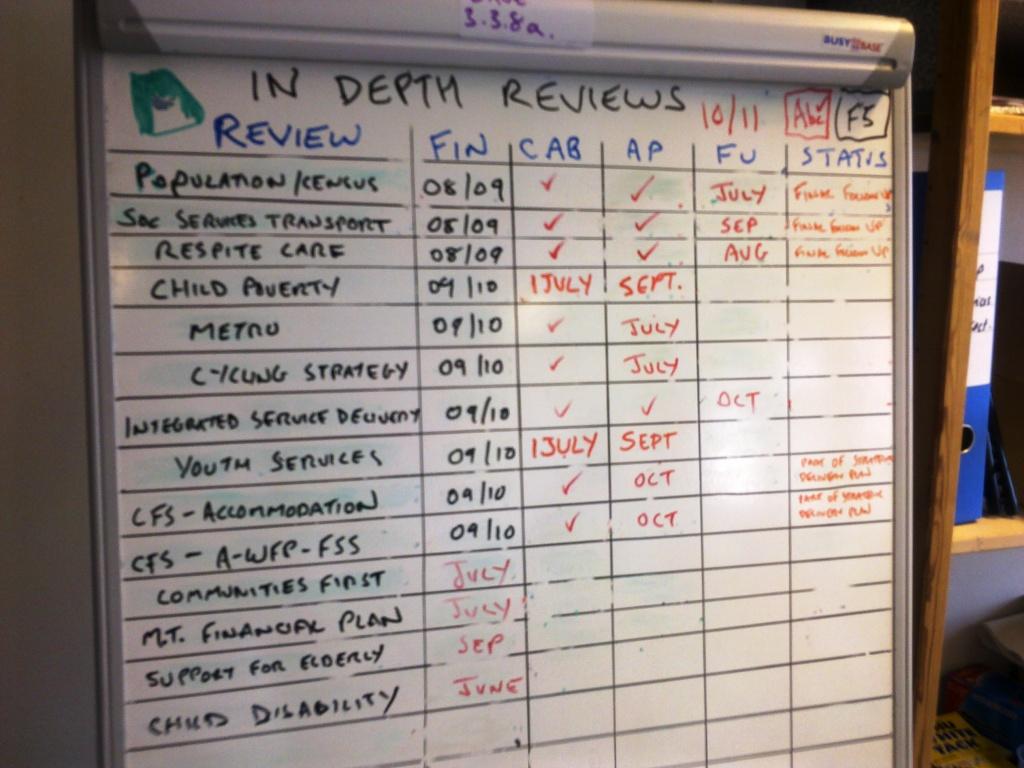 3.3.8a.
BUSY BASE
IN DEPTH REVIEWS 10/11 Abc FS
REVIEW FIN CAB AP FU STATUS
POPULATION/CENSUS 08/09 ✓ ✓ JULY FINAL FOLLOW UP
SOC SERVICES TRANSPORT 08/09 ✓ ✓ SEP FINAL FOLLOW UP
RESPITE CARE 08/09 ✓ ✓ AUG FINAL FOLLOW UP
CHILD POVERTY 09/10 1JULY SEPT.
METRO 09/10 ✓ JULY
CYCLING STRATEGY 09/10 ✓ JULY
INTEGRATED SERVICE DELIVERY 09/10 ✓ ✓ OCT
YOUTH SERVICES 09/10 1JULY SEPT
CFS - ACCOMMODATION 09/10 ✓ OCT PART OF STRATEGIC
DELIVERY PLAN
CFS - A-WFP-FSS 09/10 ✓ OCT PART OF STRATEGIC
DELIVERY PLAN
COMMUNITIES FIRST JULY
MT. FINANCIAL PLAN JULY
SUPPORT FOR ELDERLY SEP
CHILD DISABILITY JUNE
WHITE
TACK